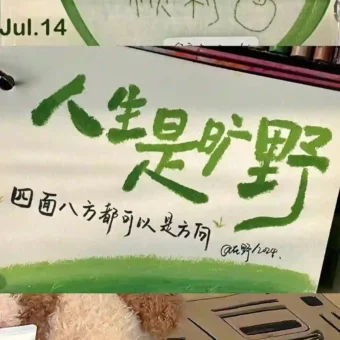 Jul.14
顺利
人生是旷野
四面八方都可以是方向